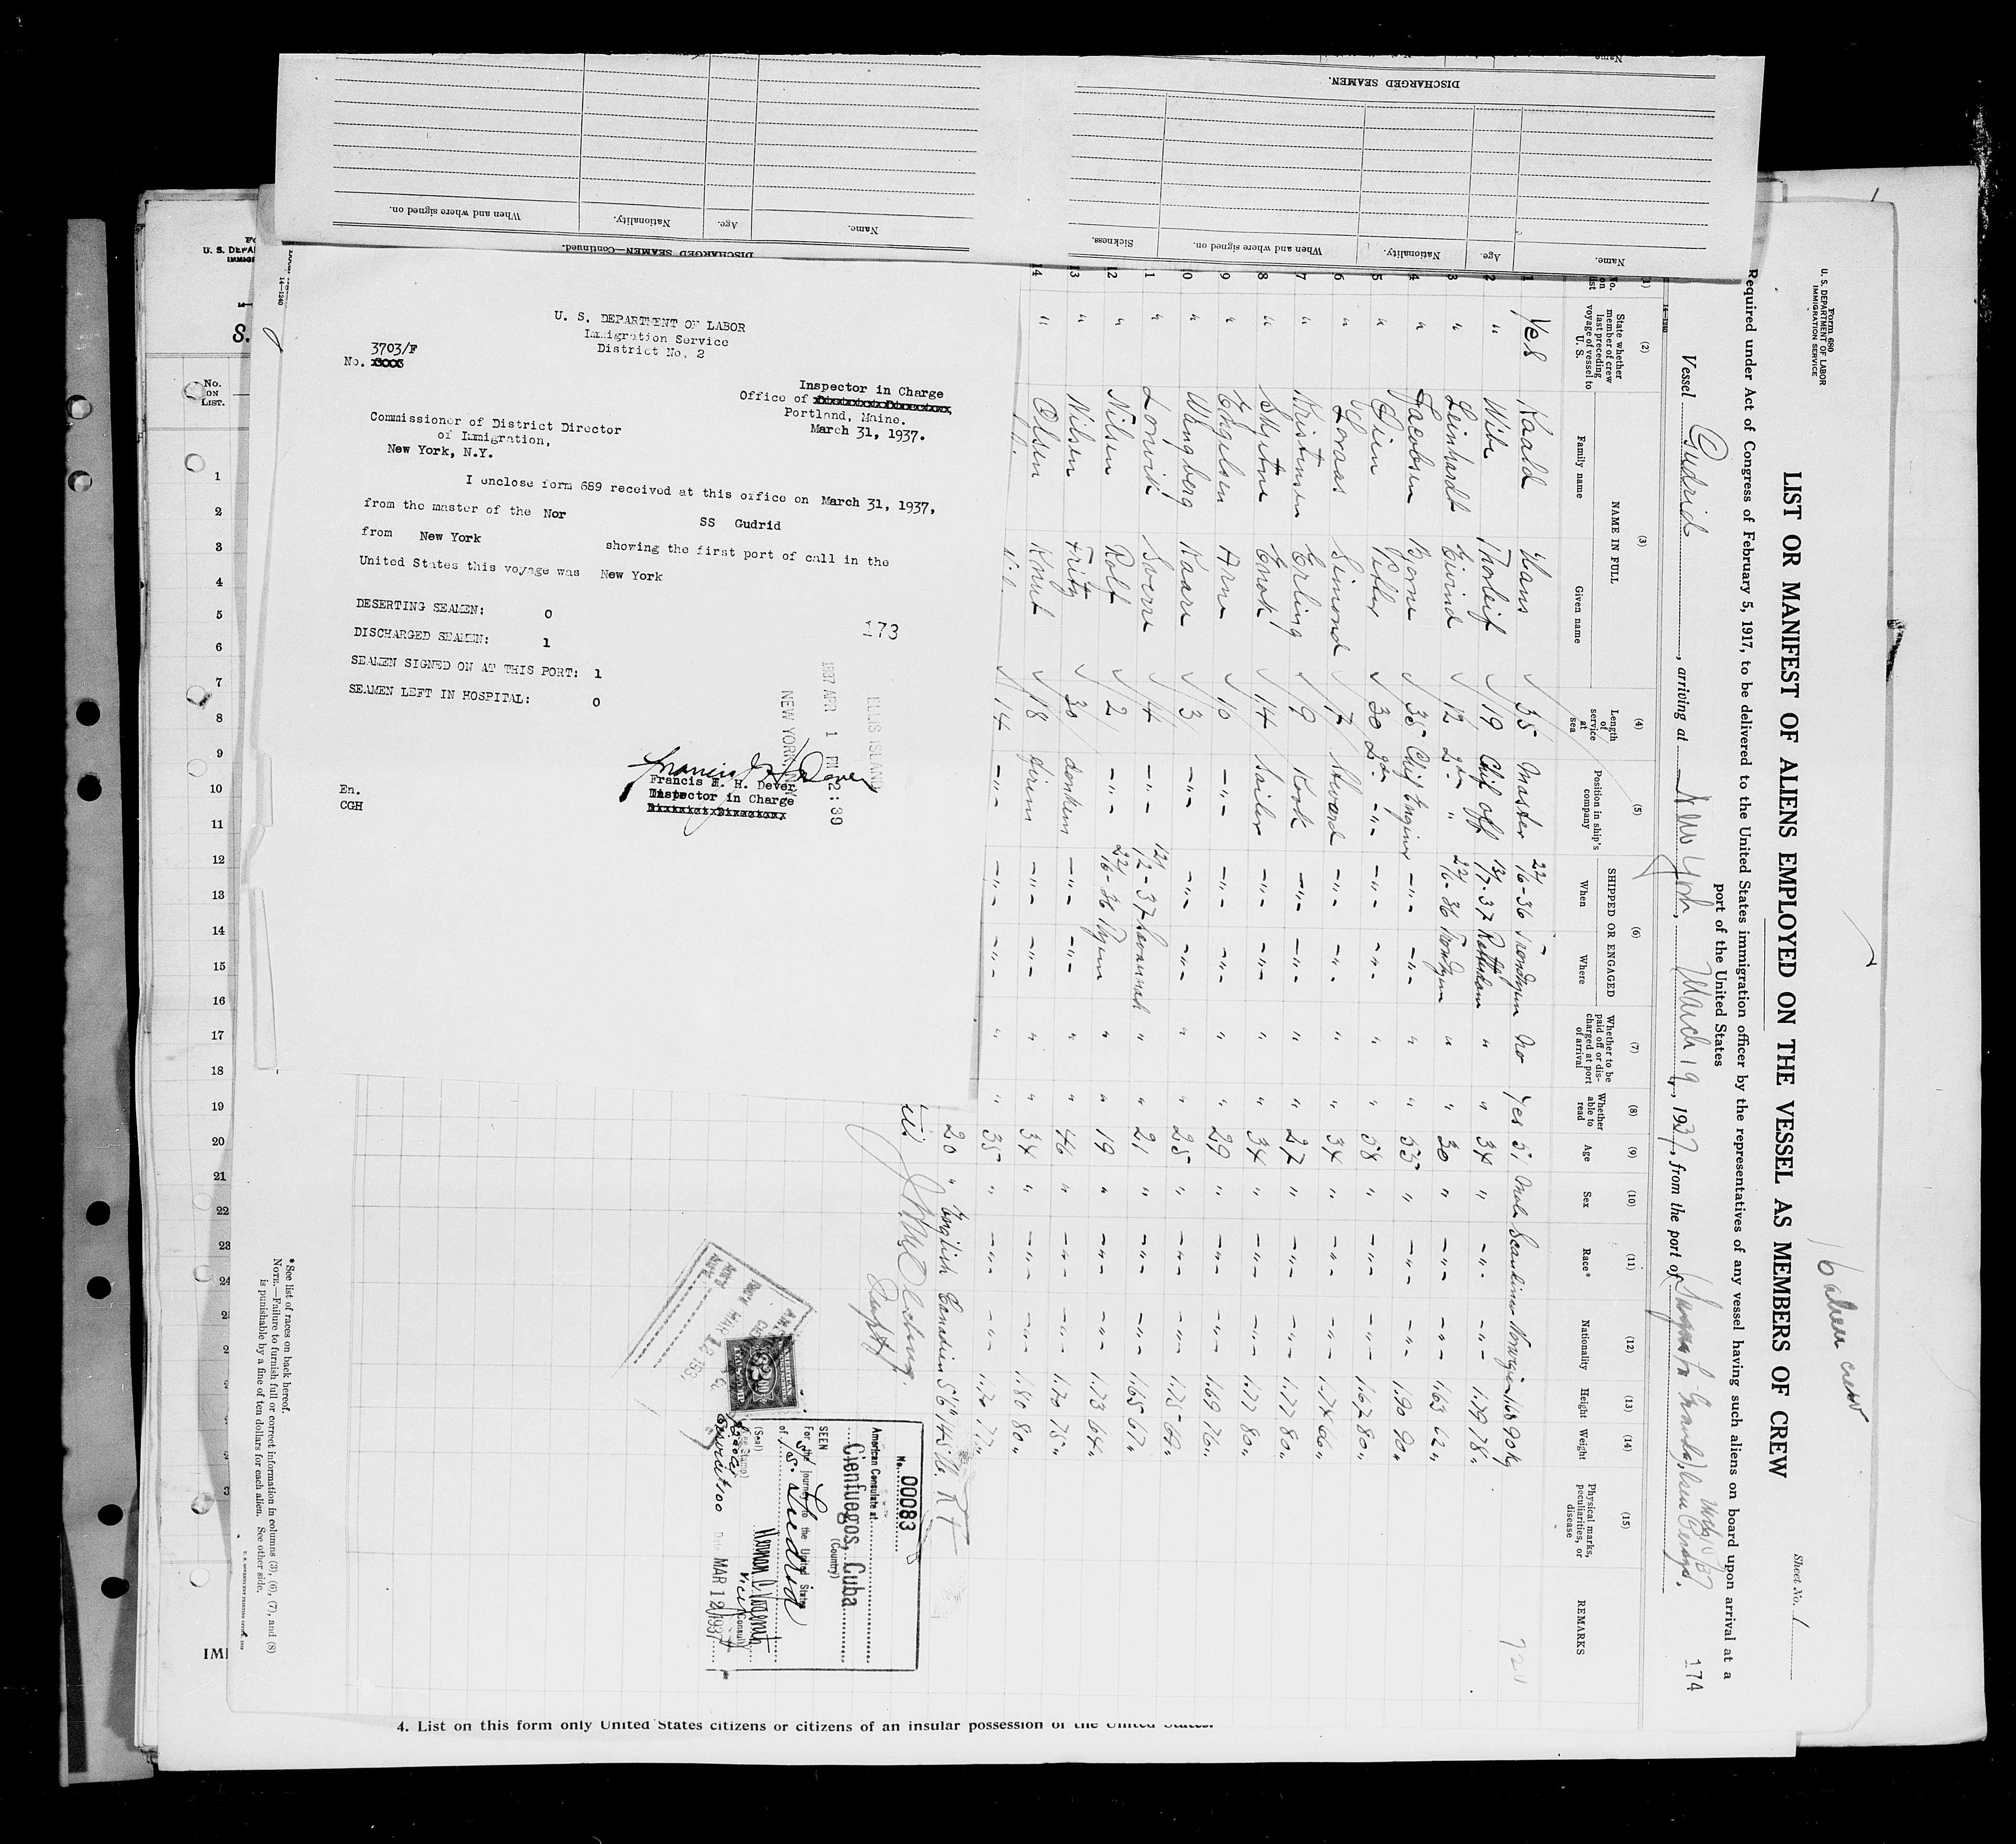 DISCHARGED SEAMEN.
Name.
Age.
Nationality.
When and where signed on.
Sickness.
DISCHARGED SEAMEN—Continued.
Name.
Age.
Nationality.
When and where signed on.
U. S. DEPARTMENT OF LABOR
Immigration Service
District No. 2
3703/F
No.
Inspector in Charge
Office of
Portland, Maine.
March 31, 1937.
Commissioner of District Director
of Immigration,
New York, N.Y.
I enclose form 689 received at this office on March 31, 1937,
from the master of the Nor SS Gudrid
from New York showing the first port of call in the
United States this voyage was New York
DESERTING SEAMEN: 0
DISCHARGED SEAMEN: 1
SEAMEN SIGNED ON AT THIS PORT: 1
SEAMEN LEFT IN HOSPITAL: 0
173
ELLIS ISLAND
1937 APR 1 PM 2:39
NEW YORK, N.Y.
Francis H. H. Dever
Inspector in Charge
En.
CGH
Form 680
U. S. DEPARTMENT OF LABOR
IMMIGRATION SERVICE
16 alien crew
Sheet No. 1
LIST OR MANIFEST OF ALIENS EMPLOYED ON THE VESSEL AS MEMBERS OF CREW
Required under Act of Congress of February 5, 1917, to be delivered to the United States immigration officer by the representatives of any vessel having such aliens on board upon arrival at a
port of the United States
174
Vessel Gudrid, arriving at New York, March 19, 1937, from the port of
14—1240
(1) No. on list
(2) State whether member of crew last preceding voyage of vessel to U. S.
(3) NAME IN FULL Family name Given name
(4) Length of service at sea
(5) Position in ship's company
(6) SHIPPED OR ENGAGED When Where
(7) Whether to be paid off or discharged at port of arrival
(8) Whether able to read
(9) Age
(10) Sex
(11) Race*
(12) Nationality
(13) Height
(14) Weight
(15) Physical marks, peculiarities, or disease
REMARKS
1 Yes Kaald Hans 35 Master 22/6-36 Trondhjem No Yes 51 Male 168 90 kg
2 " Wibe Thorleif 19 Chief off 13/1-37 Rotterdam " " 34 " -"- -"- 1.79 78 "
3 " Leinhardt Eivind 12 2 " 22/6-36 Trondhjem " " 30 " -"- -"- 1.63 62 "
4 " Jacobsen Bjarne 35 Chief Engineer -"- -"- " " 55 " -"- -"- 1.90 90 "
5 " Gien Petter 30 2 -"- -"- -"- " " 58 " -"- -"- 1.67 80 "
6 " Lovaas Simond 7 Steward -"- -"- " " 34 " -"- -"- 1.74 66 "
7 " Kristensen Erling 9 Kock -"- -"- " " 27 " -"- -"- 1.77 80 "
8 " Skjetne Enok 14 Sailor -"- -"- " " 34 " -"- -"- 1.77 80 "
9 " Engelsen Arne 10 -"- -"- -"- " " 29 " -"- -"- 1.69 76 "
10 " Wingberg Kaare 3 -"- -"- -"- " " 25 " -"- -"- 1.75 69 "
11 " Lonvik Sverre 4 -"- 12/2-37 Savannah " " 21 " -"- -"- 1.65 67 "
12 " Nilsen Rolf 2 -"- 22/6-36 " " 19 " -"- -"- 1.73 64 "
13 " Nilsen Fritz 30 donkim -"- -"- " " 46 " -"- -"- 1.70 75 "
14 " Olsen Knut 18 firem -"- -"- " " 34 " -"- -"- 1.80 80 "
14 -"- -"- -"- " " 35 " -"- -"- 1.70 77 "
20 " English Canadien 5'6" 145 lb.
No. 00083
American Consulate at
Cienfuegos, Cuba
(Country)
SEEN
For the journey to the United States
of S/S. Gudrid
(Seal)
Vice Consul
Date MAR 12 1937
*See list of races on back hereof.
NOTE.—Failure to furnish full or correct information in columns (3), (6), (7), and (8)
is punishable by a fine of ten dollars for each alien. See other side.
U. S. GOVERNMENT PRINTING OFFICE
U. S. DEPA
S.
No.
ON
LIST.
1
2
3
4
5
6
7
8
9
10
11
12
13
14
15
16
17
18
19
20
21
22
23
24
IMI
4. List on this form only United States citizens or citizens of an insular possession of the United States.